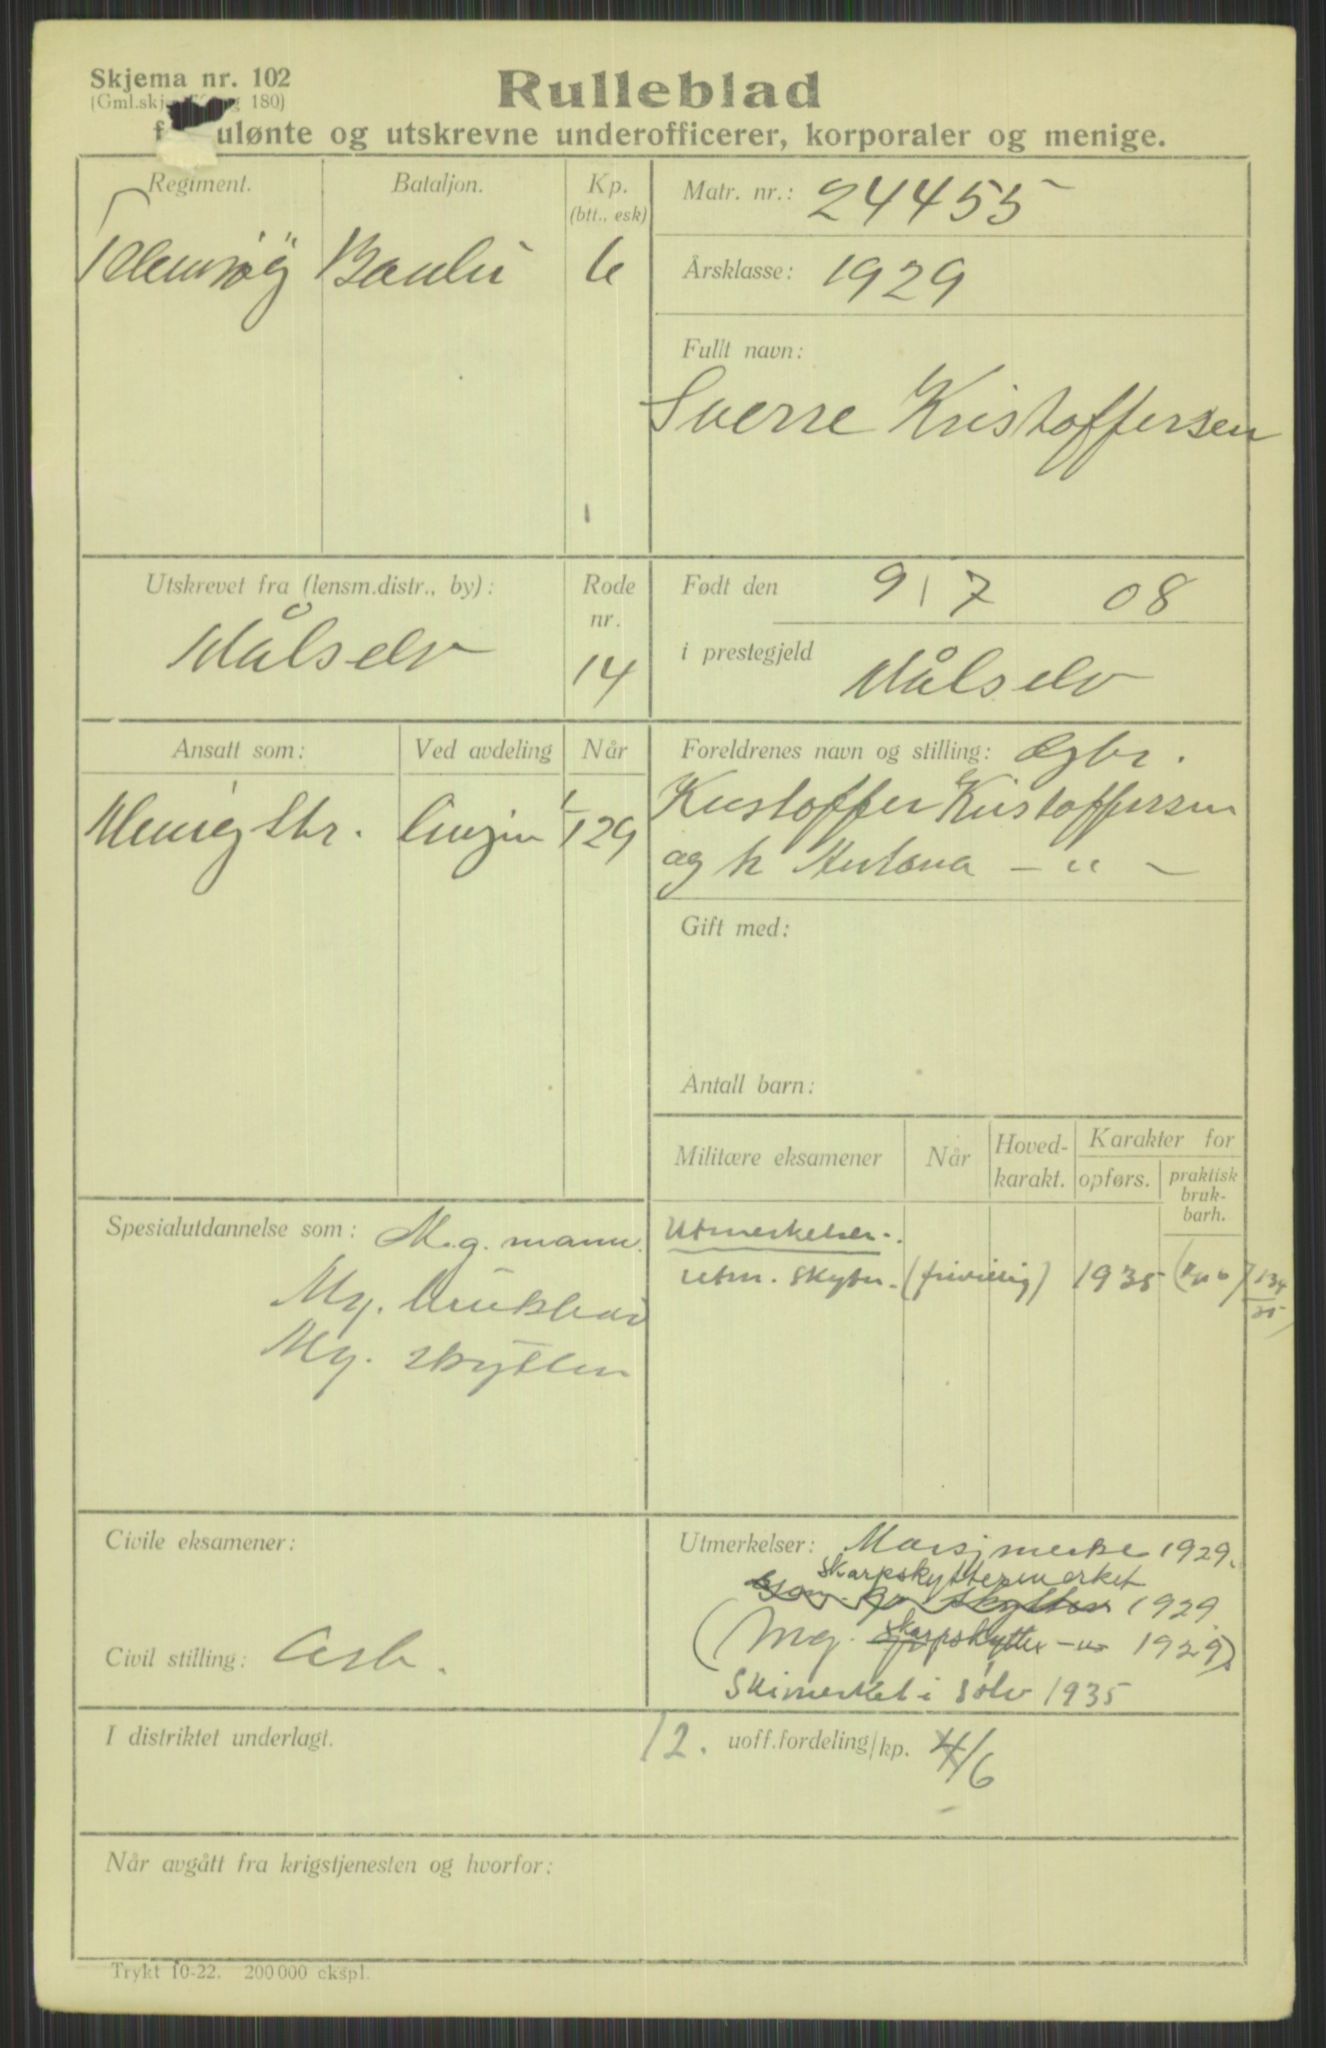 Skjema nr. 102
(Gml.skj 180)
Rulleblad
ulønte og utskrevne underofficerer, korporaler og menige.
Regiment.
Bataljon.
Kp.
(btt., esk)
6
Matr. nr.: 24455
Årsklasse: 1929
Fullt navn:
Sverre Kristoffersen
Utskrevet fra (lensm.distr., by):
Målselv
Rode
nr.
14
Født den 9/7 08
i prestegjeld Målselv
Ansatt som:
Ved avdeling
Når
Menig Str.
1/1 29
Foreldrenes navn og stilling: Gbr.
Kristoffer Kristoffersen
og h
Gift med:
Antall barn:
Militære eksamener
Når
Hoved-
karakt.
Karakter for
opførs.
praktisk
bruk-
barh.
Utmerkelser.
Utm. skytter. (frivillig) 1935
Spesialutdannelse som: M.g. mann.
Mg.
Mg. skytter
Civile eksamener:
Civil stilling: Arb.
Utmerkelser: Marsjmerke 1929.
Skarpskyttermerket
1929
(Mg. skarpskytter -"- 1929)
Skimerket i sølv 1935
I distriktet underlagt.
12. uoff.fordeling/kp. 4/6
Når avgått fra krigstjenesten og hvorfor:
Trykt 10-22. 200 000 ekspl.